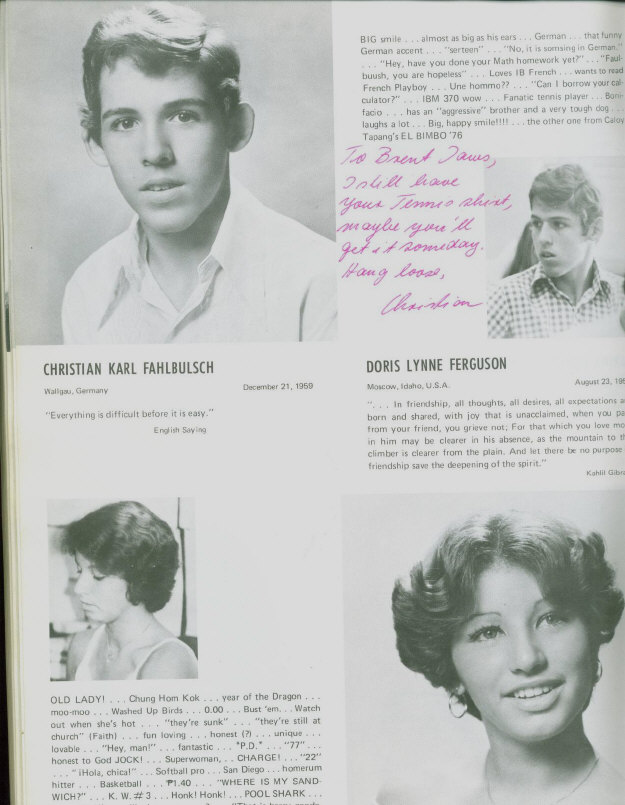 BIG smile . . . almost as big as his ears . . . German . . . that funny
German accent . . . "serteen" . . . "No, it is somsing in German."
. . . "Hey, have you done your Math homework yet?" . . . "Faul-
buush, you are hopeless" . . . Loves IB French . . . wants to read
French Playboy . . . Une hommo?? . . . "Can I borrow your cal-
culator?" . . . IBM 370 wow . . . Fanatic tennis player . . . Boni-
facio . . . has an "aggressive" brother and a very tough dog . . .
laughs a lot . . . Big, happy smile!!!! . . . the other one from Caloy
Tapang's EL BIMBO '76
To Brent Jaws,
I still have
your Tennis shirt,
maybe you'll
get it someday.
Hang loose,
Christian
CHRISTIAN KARL FAHLBULSCH
Wallgau, Germany
December 21, 1959
"Everything is difficult before it is easy."
English Saying
DORIS LYNNE FERGUSON
Moscow, Idaho, U.S.A.
August 23, 195
". . . In friendship, all thoughts, all desires, all expectations a
born and shared, with joy that is unacclaimed, when you pa
from your friend, you grieve not; For that which you love mo
in him may be clearer in his absence, as the mountain to th
climber is clearer from the plain. And let there be no purpose
friendship save the deepening of the spirit."
Kahlil Gibra
OLD LADY! . . . Chung Hom Kok . . . year of the Dragon . . .
moo-moo . . . Washed Up Birds . . . 0.00 . . . Bust 'em . . . Watch
out when she's hot . . . "they're sunk" . . . "they're still at
church" (Faith) . . . fun loving . . . honest (?) . . . unique . . .
lovable . . . "Hey, man!" . . . fantastic . . . "P.D." . . . "77" . . .
honest to God JOCK! . . . Superwoman, . . CHARGE! . . . "22"
. . . "¡Hola, chica!" . . . Softball pro . . . San Diego . . . homerun
hitter . . . Basketball . . . ₱1.40 . . . "WHERE IS MY SAND-
WICH?" . . . K. W. # 3 . . . Honk! Honk! . . . POOL SHARK . . .